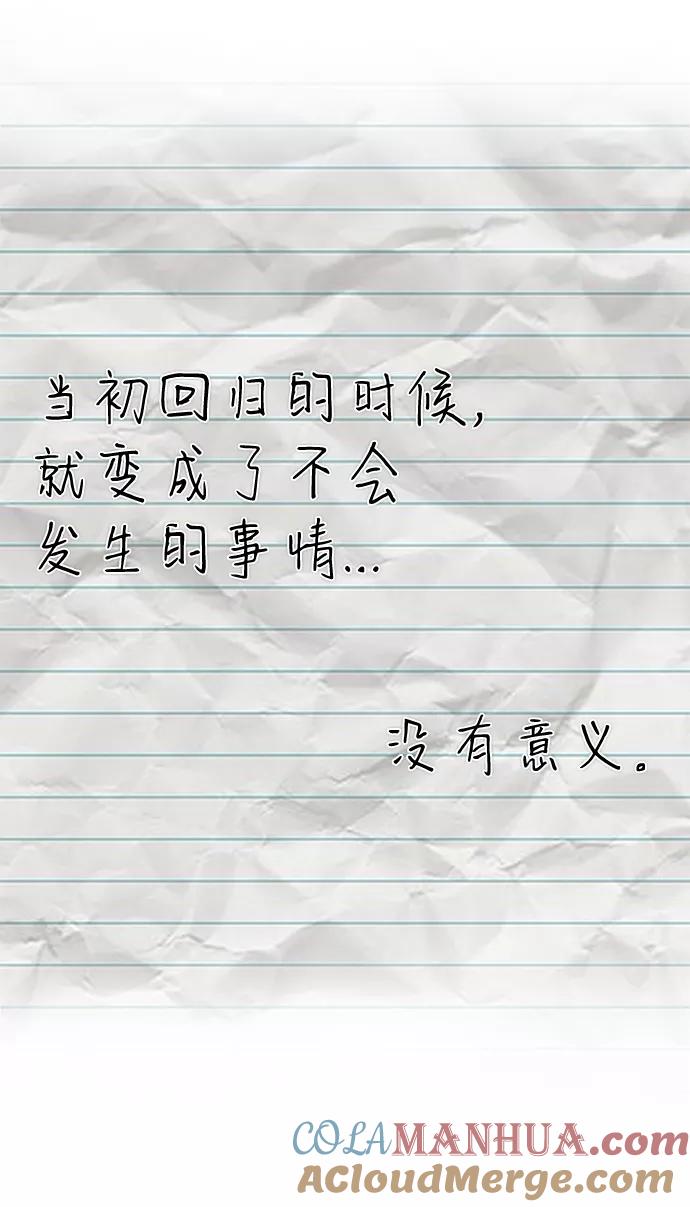 当初回归的时候,
就变成了不会
发生的事情...
没有意义。
COLAMANHUA.com
ACloudMerge.com